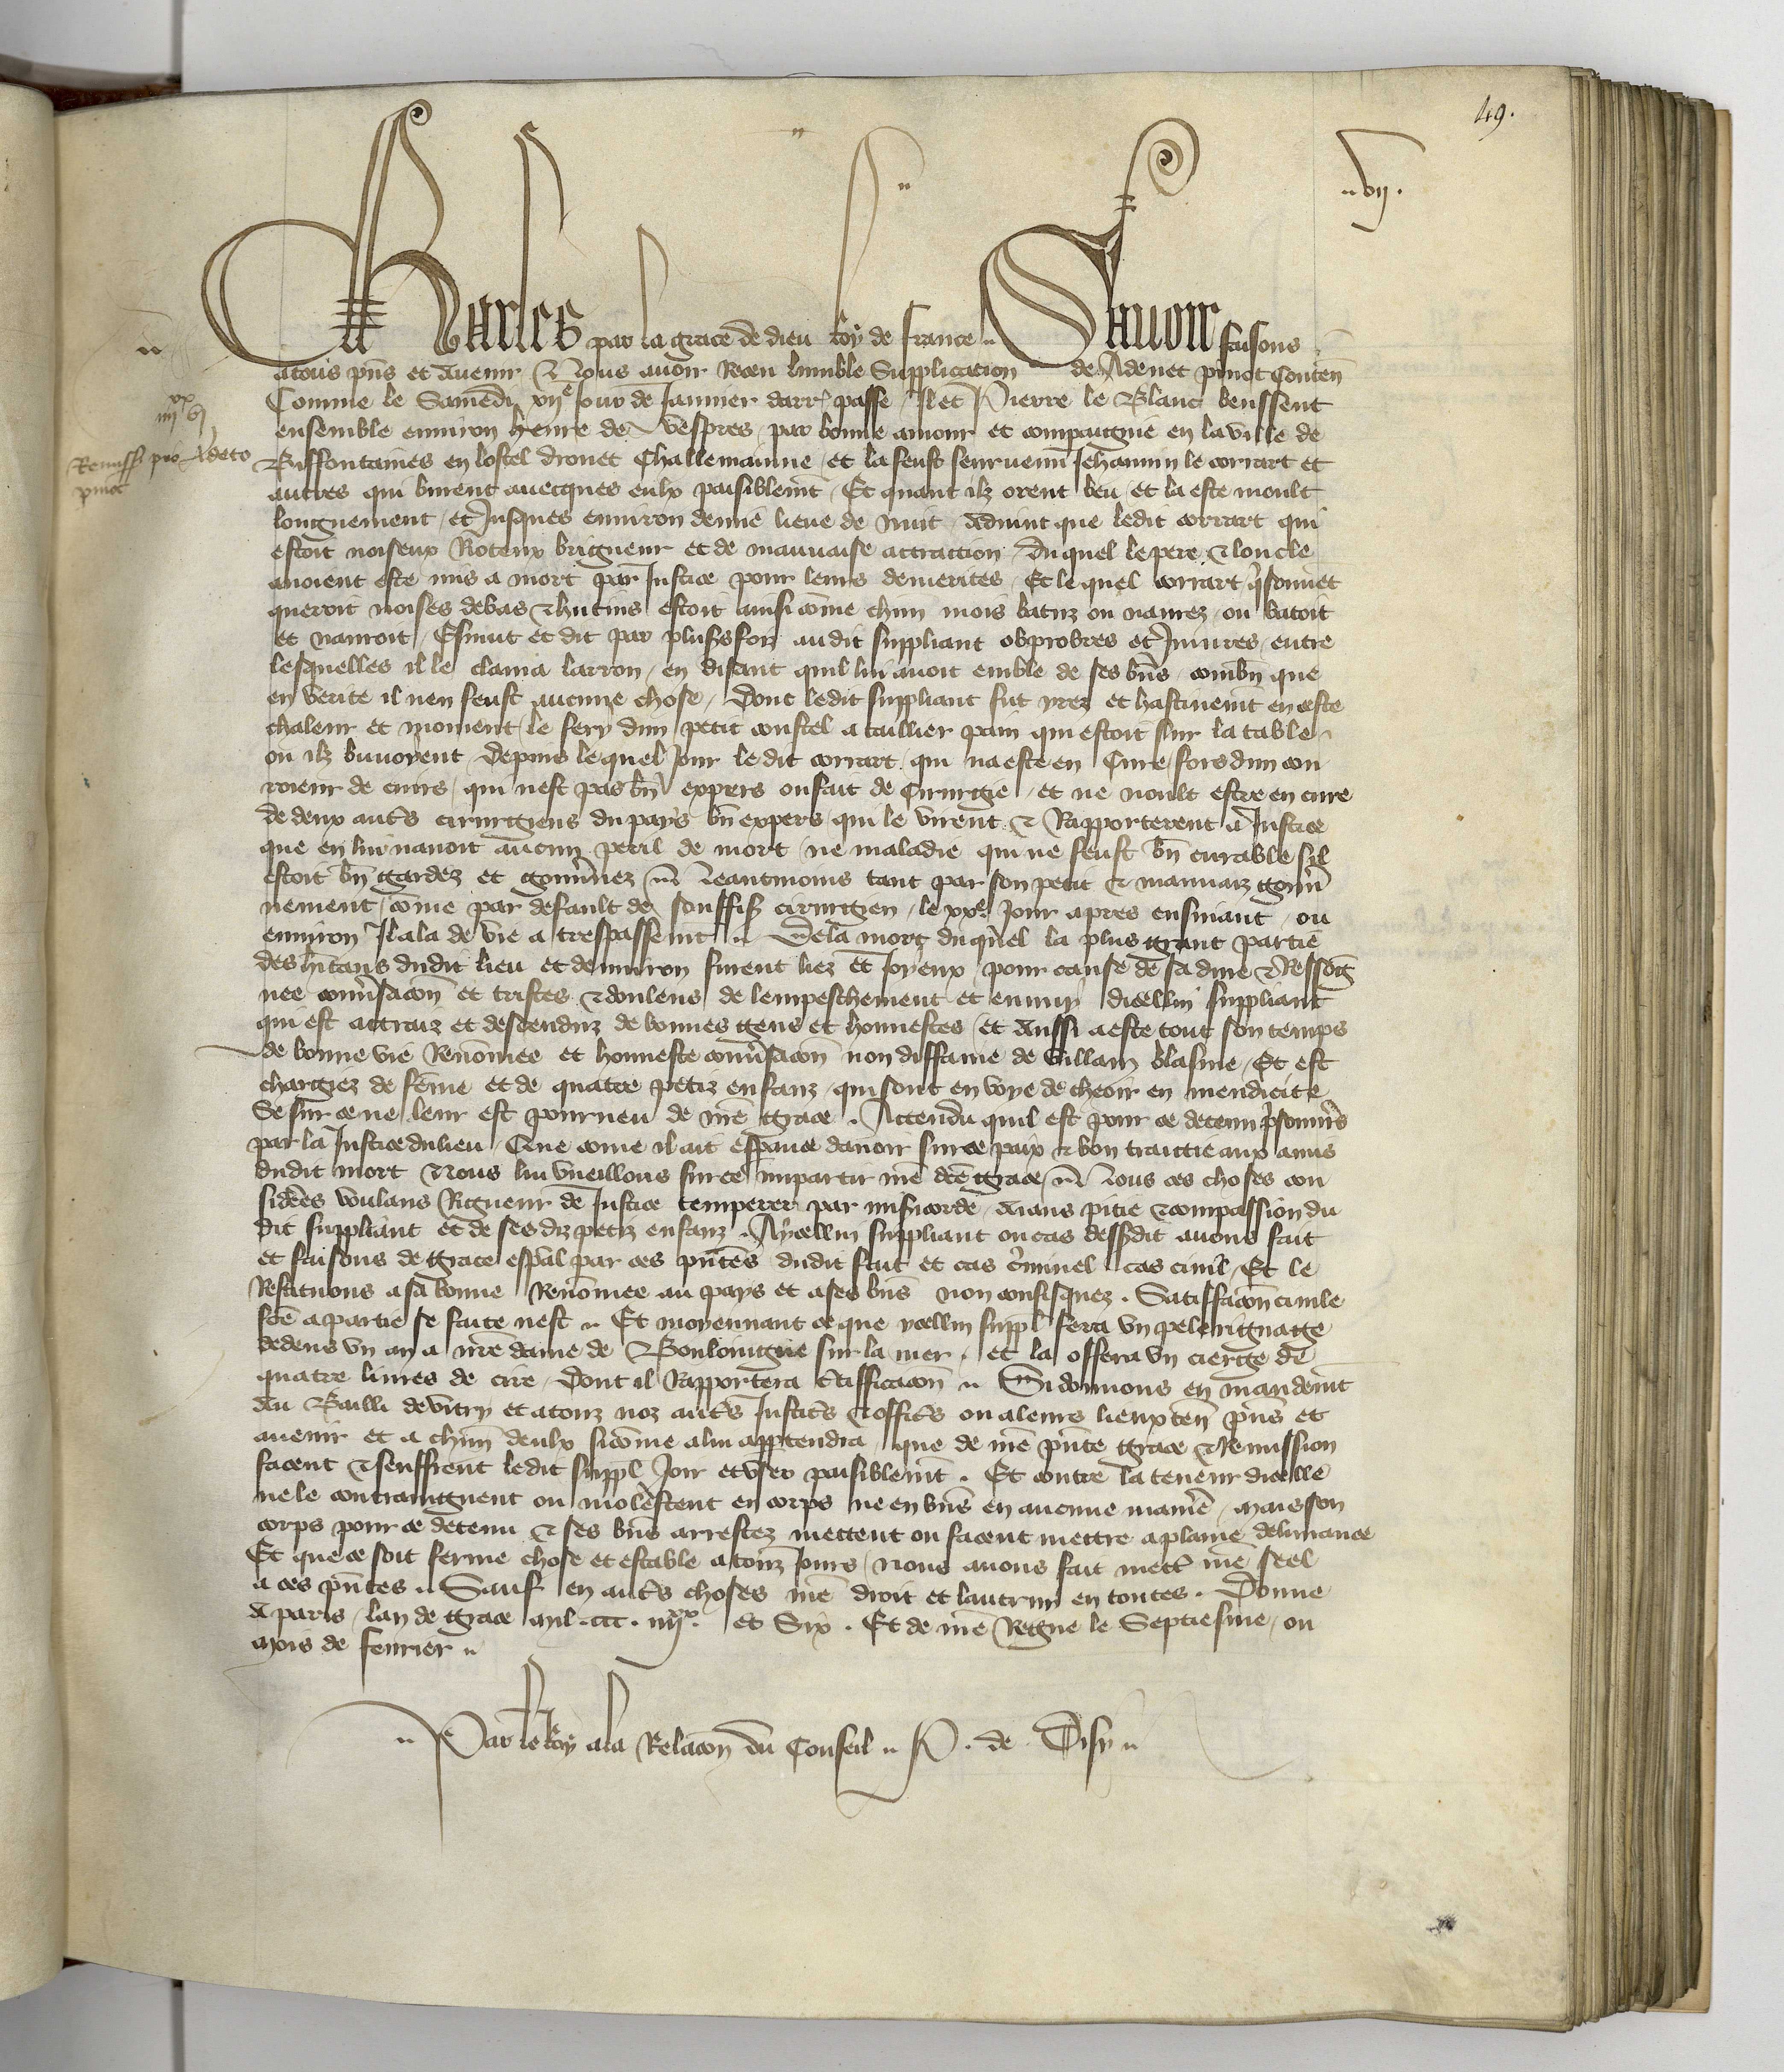 49.
vij.
Charles par la grace de dieu Roy de france Savoir faisons
atous pñs et avenir Nous avoir Receu lumble Supplicacion de Adenet pinot Conteñ
Comme le Samedi xijᵉ Jour de Janvier darr̃ passe Il et Pierre le Blanc beussent
ensemble environ heure de Vespres par bonne amour et compaignie en laville de
iiijˣˣ vj
Remissio pro Adeto
pinot
Biffontaines en lostel drouet Challemanne et la feust seurvenu Jehannin le corrart et
autres qui burent avecques eulx paisiblem̃t Et quant ilz orent beu et la este moult
longuement et Jusques environ demie lieue de nuit Advint que ledit corrart qui
estoit noiseux Roteux brigueur et de mauvaise attraction Du quel le pere & loncle
avoient este mis a mort par Justice pour leurs demerites Et le quel corrart q̃ souvet
queroit noises debas & hutins estoit ainsi cõme chũn mois batuz ou navrez ou batoit
et navroit Esmut et dit par plus̃s foiz audit suppliant obprobres et Injures entre
lesquelles il le clama larron en disant quil lui avoit emble de ses bñs combñ que
en verite il nen feust aucune chose Dont ledit suppliant fut yrez et hastivem̃t en ceste
chaleur et moment le fery dun petit coustel a taillier pain qui estoit sur la table
ou ilz buvoyent Depuis lequel Jour le dit corrart qui na este en Cure fors dun con
roieur de cuirs qui nest pas bñ expers ou fait de Cirurgie et ne voult estre en cure
de deux aut̃s cirurgiens du pays bñ expers qui le virent & Rapporterent a Justice
que en lui navoit aucun peril de mort ne maladie qui ne feust bñ curable sil
estoit bñ gardez et gouv̾nez Neantmoins tant par son petit & mauvaiz gouv̾
nement cõme par default de souffis̃ cirurgien le xxᵉ Jour apres ensuivant ou
environ Il ala de vie a trespassem̃t De la mort duquel la plus grant partie
des h̃itans dudit lieu et denviron furent liez et Joyeux pour cause de sa dure & Ressoig
nee conv̾sacõn et tristes & doulens de lempeschement et ennuy dicellui suppliant
qui est attraiz et descenduz de bonnes gens et honnestes et Aussi a este tout son temps
de bonne vie Renõmee et honneste conv̾sacõn non diffame de villain blasme Et est
chargiez de fẽme et de quatre petiz enfanz qui sont en voye de cheoir en mendicite
Se sur ce ne leur est pourveu de nr̃e grace . Attendu quil est pour ce detenu p̃sonnier
par la Justice du lieu Que come il ait esp̃ance davoir sur ce paix & bon traittie aux amis
dudit mort Nous lui vueillons sur ce impartir nr̃e d̃ce grace Nous ces choses con
sid̾ees voulans Rigueur de Justice temperer par mis̾icorde Aians pitie & compassion du
dit suppliant et de sesdiz petiz enfanz . A ycellui suppliant ou cas dess̾dit avons fait
et faisons de grace esp̃al par ces pñtes dudit fait et cas c̾minel cas civil Et le
Restituons a sa bonne Renõmee au pays et a ses bñs non confisquez . Satisffacõn civile
fc̃e a partie se faite nest Et moyennant ce que ycellui suppl̃ fera un pelerignage
dedens un an a nr̃e dame de Bouloingne sur la mer . et la offera un cierge de
quatre livres de cire Dont il Rapportera c̾tifficacõn Si donnons en mandem̃t
Au Bailli de vitry et a touz noz aut̃s Justic̃s & offic̃s ou a leurs lieux teñ p̃ns et
avenir et a chũn deulx sicõme alui app̾tendra que de nr̃e p̃nte grace & Remission
facent & seuffrent ledit suppl̃ Joir et user paisiblem̃t . Et contre la teneur dicelle
ne le contraingnent ou molestent en corps ne en biẽs en aucune maniẽ Mais son
corps pour ce detenu & ses biẽs arrestez mettent ou facent mettre a plaine delivrance
Et que ce soit ferme chose et estable a touz Jours Nous avons fait mett̾ nr̃e seel
a ces pñtes Sauf en aut̃s choses nr̃e droit et lautruy en toutes . Donne
A paris lan de grace mil . ccc . iiijˣˣ et Six . Et de nr̃e Regne le Septiesme ou
Mois de fevrier
Par le Roy ala Relacõn du Conseil P . de Disy